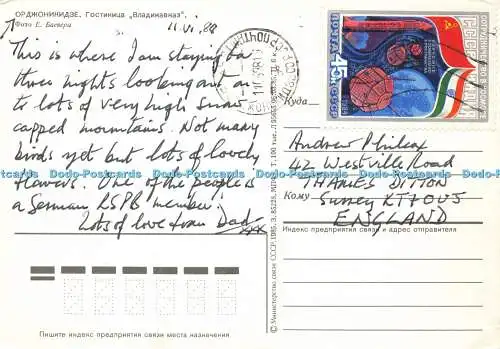 ОРДЖОНИКИДЗЕ. Гостиница „Владикавказ".
Фото Е. Баевера
11.VI.88
This is where I am staying for
three nights looking out on
to lots of very high snow
capped mountains. Not many
birds yet but lots of lovely
flowers. One of the people is
a German RSPB member!
Lots of love from Dad
xxx
ПОЧТА СССР
45к
ИНДИЯ
Куда
Andrew Philcox
42 Westville Road
THAMES DITTON
Кому Surrey KT7 0UJ
ENGLAND
Индекс предприятия связи и адрес отправителя
© Министерство связи СССР, 1985.
Пишите индекс предприятия связи места назначения
Dodo-Postcards Dodo-Postcards Dodo-Postcards Dodo-Postcards